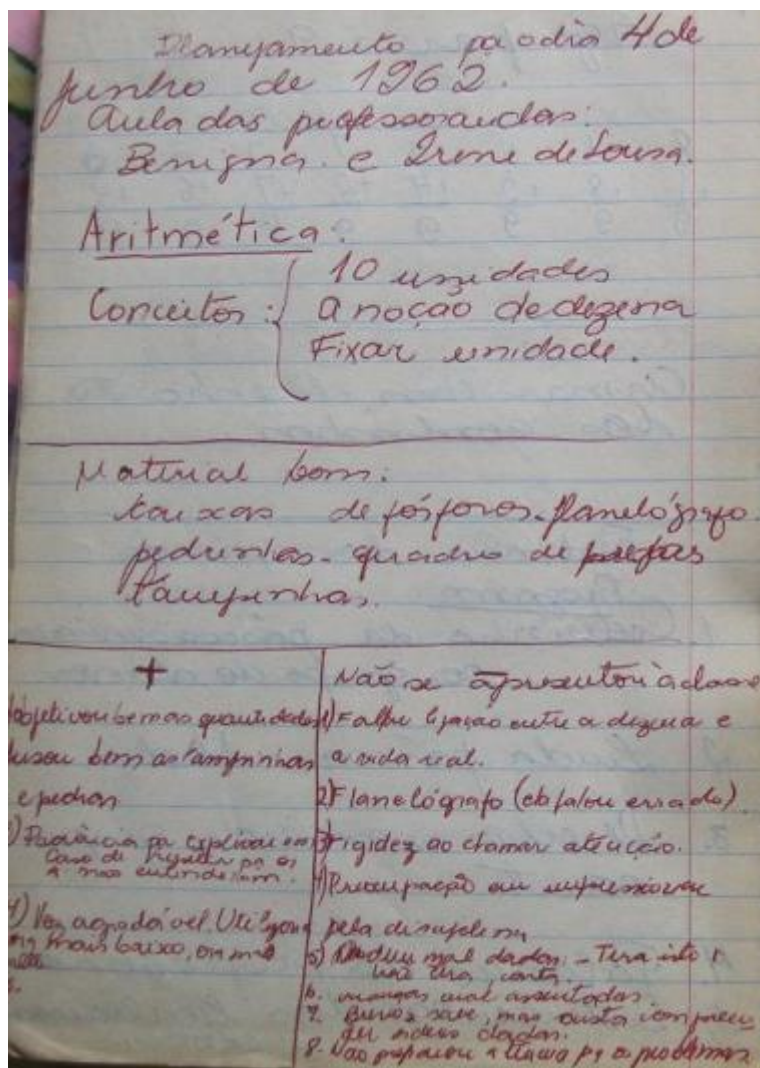 Planejamento pa o dia 4 de
junho de 1962.
Aula das professorandas:
Benigna e Irene de Sousa.
Aritmética.
Conceitos:
10 unidades
a noção de dezena
Fixar unidade.
Material bom:
caixas de fósforos - flanelógrafo
pedrinhas - quadro de pregas
tampinhas.
+
objetivou bem as quantidades
usou bem as tampinhas
e pedras
Paciência pa explicar
caso de
não entenderam.
4) Voz agradável. Utilizou
mais baixo, ou mais
Não se apresentou à classe
1) Faltou ligação entre a dezena e
a vida real.
2) Flanelógrafo (cb falou errado)
3) rigidez ao chamar atenção.
4) Preocupação em impressionar
pela disciplina
5) mal dadas. - Tira isto
conta.
6. crianças mal assentadas.
7. sabe, mas custa compreen
der dadas.
8. Não preparou a classe pa o problemas